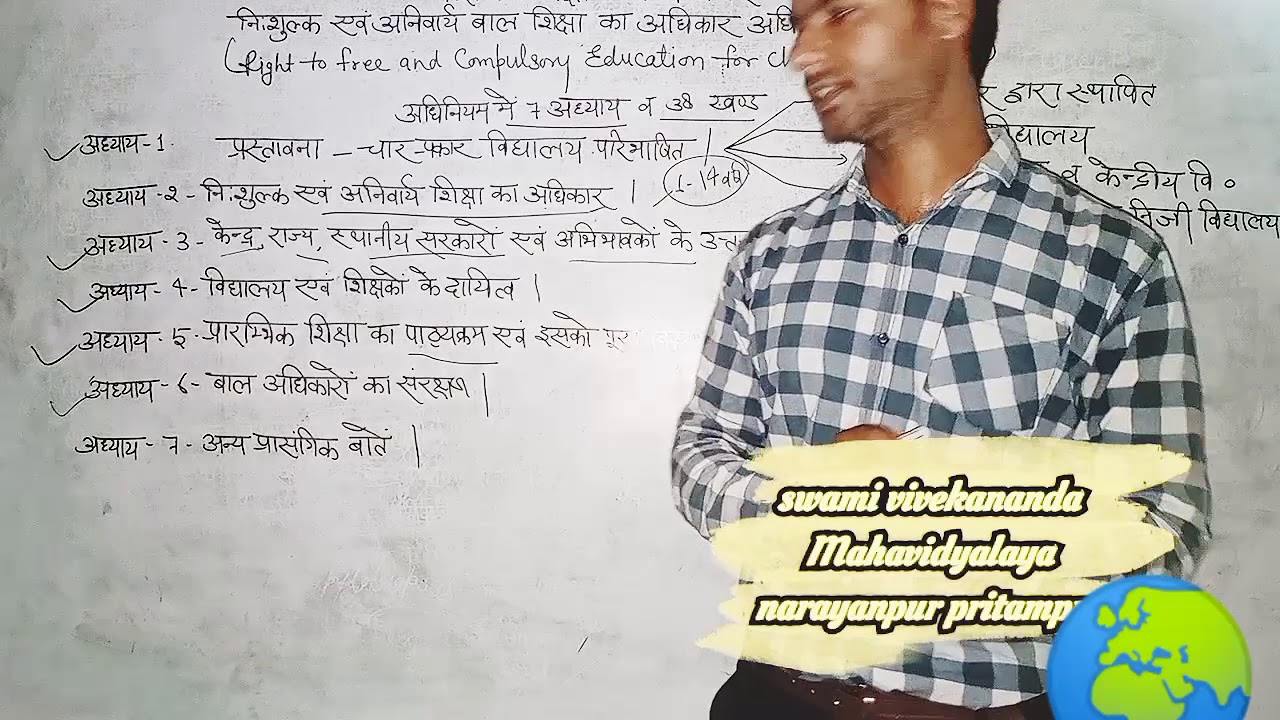 निःशुल्क एवं अनिवार्य बाल शिक्षा का अधिकार
(Right to free and Compulsory Education for
अधिनियम में 7 अध्याय व 38 खण्ड
द्वारा स्थापित
अध्याय-1. प्रस्तावना - चार प्रकार विद्यालय परिभाषित |
अध्याय-2- निःशुल्क एवं अनिवार्य शिक्षा का अधिकार |
व केन्द्रीय वि०
निजी विद्यालय
अध्याय-3- केन्द्र, राज्य, स्थानीय सरकारों एवं अभिभावकों के
अध्याय-4- विद्यालय एवं शिक्षकों के दायित्व |
अध्याय-5- प्रारम्भिक शिक्षा का पाठ्यक्रम एवं इसको
अध्याय-6- बाल अधिकारों का संरक्षण |
अध्याय-7- अन्य प्रासंगिक बातें |
swami vivekananda
Mahavidyalaya
narayanpur